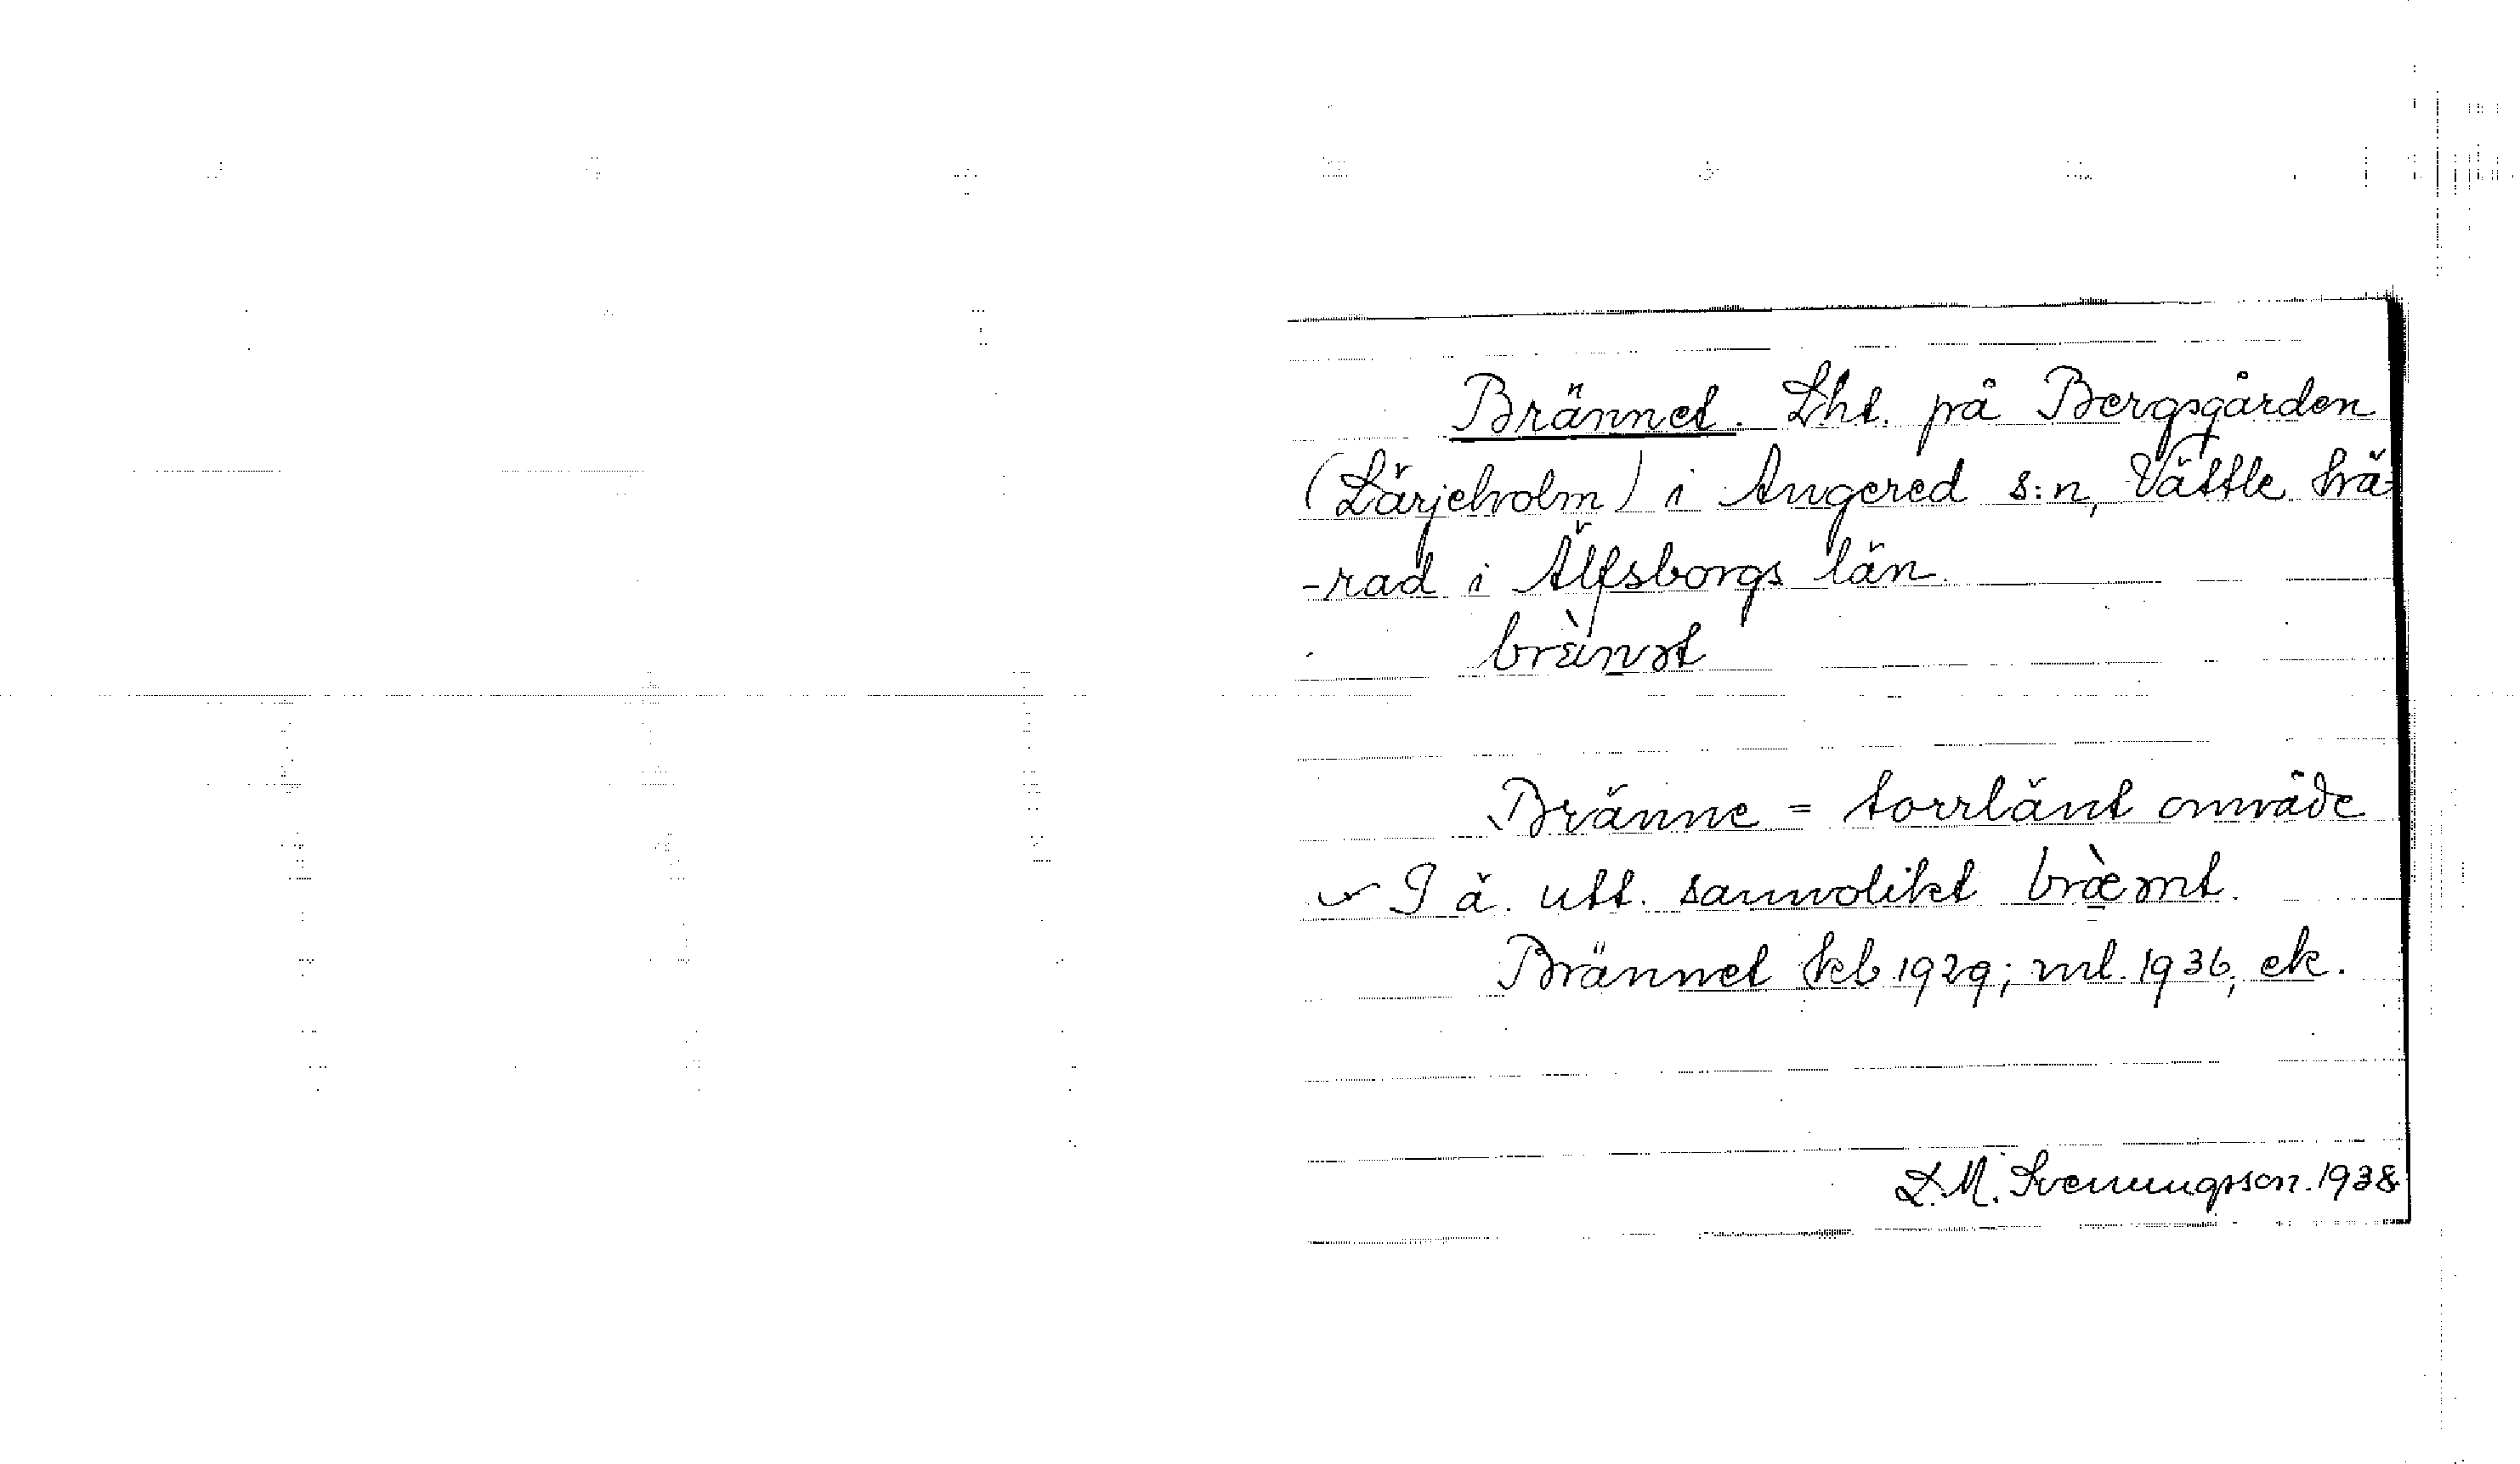 Brännet. Lht. på Bergsgården
(Lärjeholm) i Angered s:n, Vättle hä-
-rad i Älfsborgs län.
brὲnət
Bränne = torrlänt område
I ä. utt. sannolikt
Brännet kb 1929; ml. 1936, ek.
L.M. Svenungsson. 1938